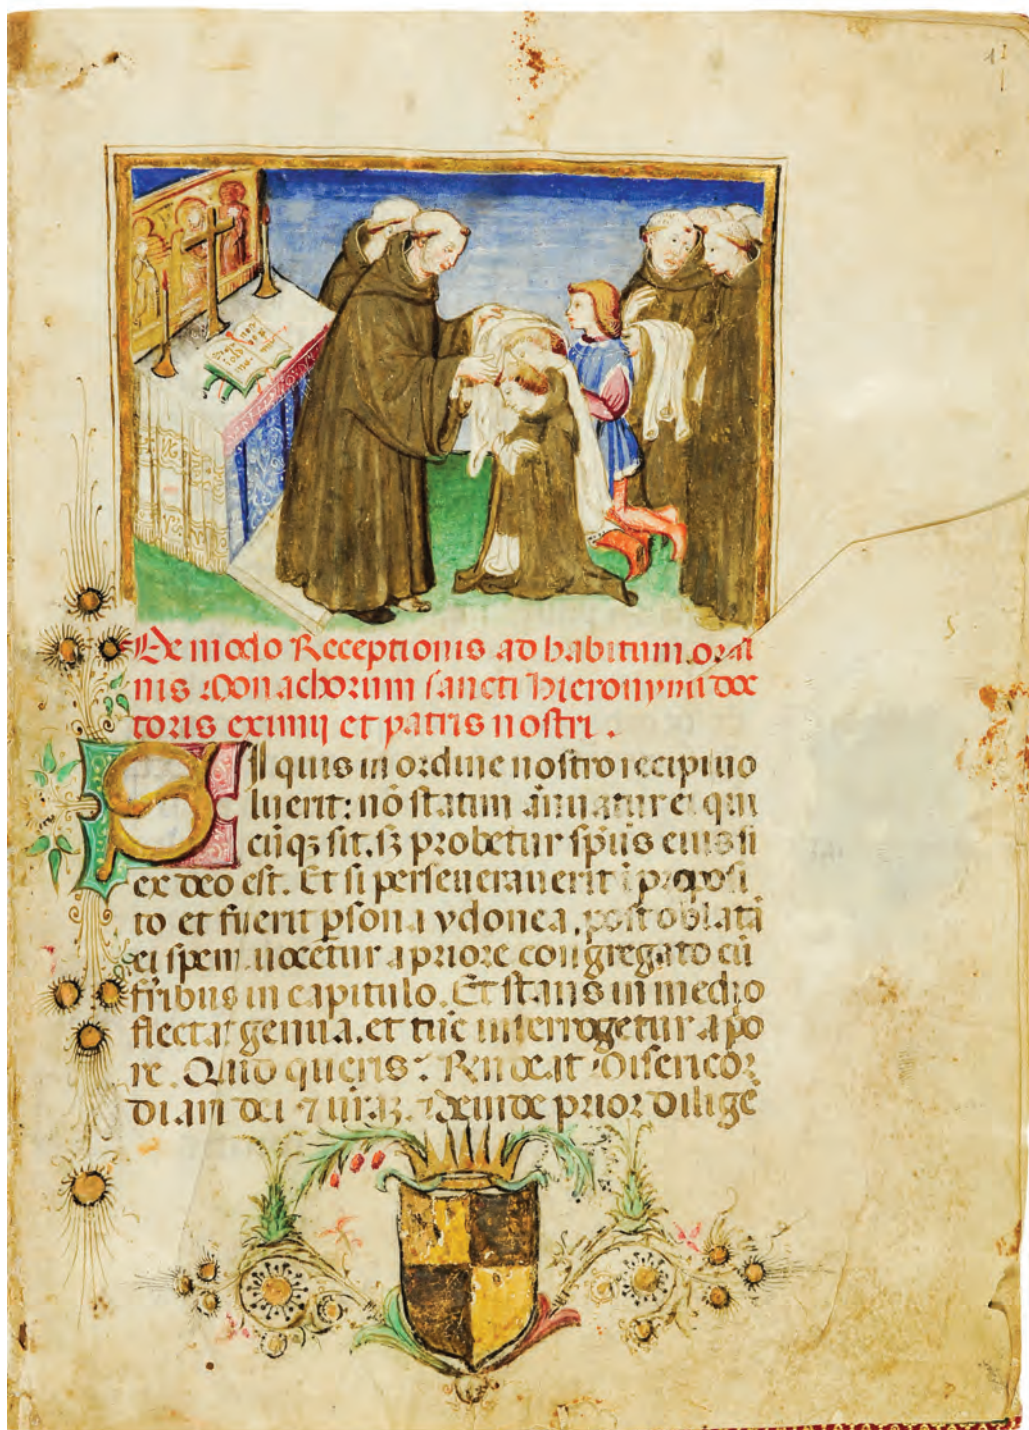 De modo Receptionis ad habitum ordi
nis Monachorum sancti Hieronymi doc
toris eximij et patris nostri.
SI quis in ordine nostro recipi uo
luerit: nō statim annuatur ei qui
cūqꝫ sit. sꝫ probetur spūs eius si
ex deo est. Et si perseuerauerit ī proposi
to et fuerit psona ydonea, post oblatā
ei spem uocetur a priore congregato cū
fr̄ibus in capitulo. Et stans in medio
flectat genua. et tūc interrogetur a po
re. Quid queris? Rndeat Misericor
diam dei ⁊ ur̄aꝫ. deinde prior dilige